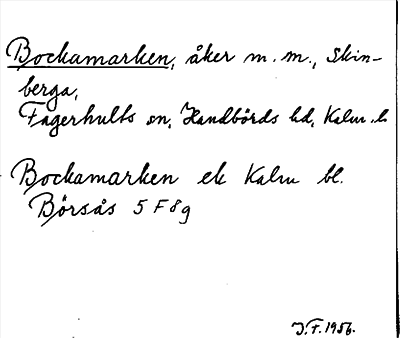 Bockamarken, åker m.m., Skin-
berga,
Fagerhults sn, Handbörds hd, Kalm. l.
Bockamarken ek Kalm bl.
Börsås 5 F 8 g
J.F. 1956.